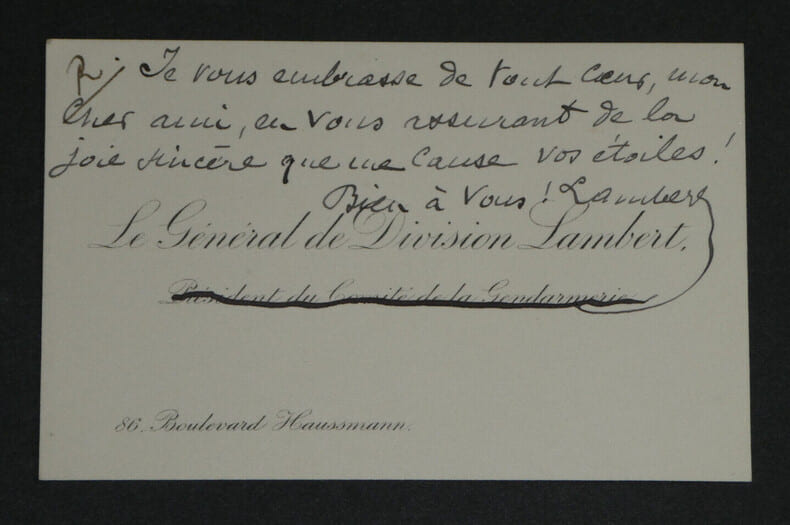 R. Je vous embrasse de tout cœur, mon
cher ami, en vous assurant de la
joie sincère que me cause vos étoiles !
Bien à Vous ! Lambert
Le Général de Division Lambert,
Président du Comité de la Gendarmerie
86. Boulevard Haussmann.